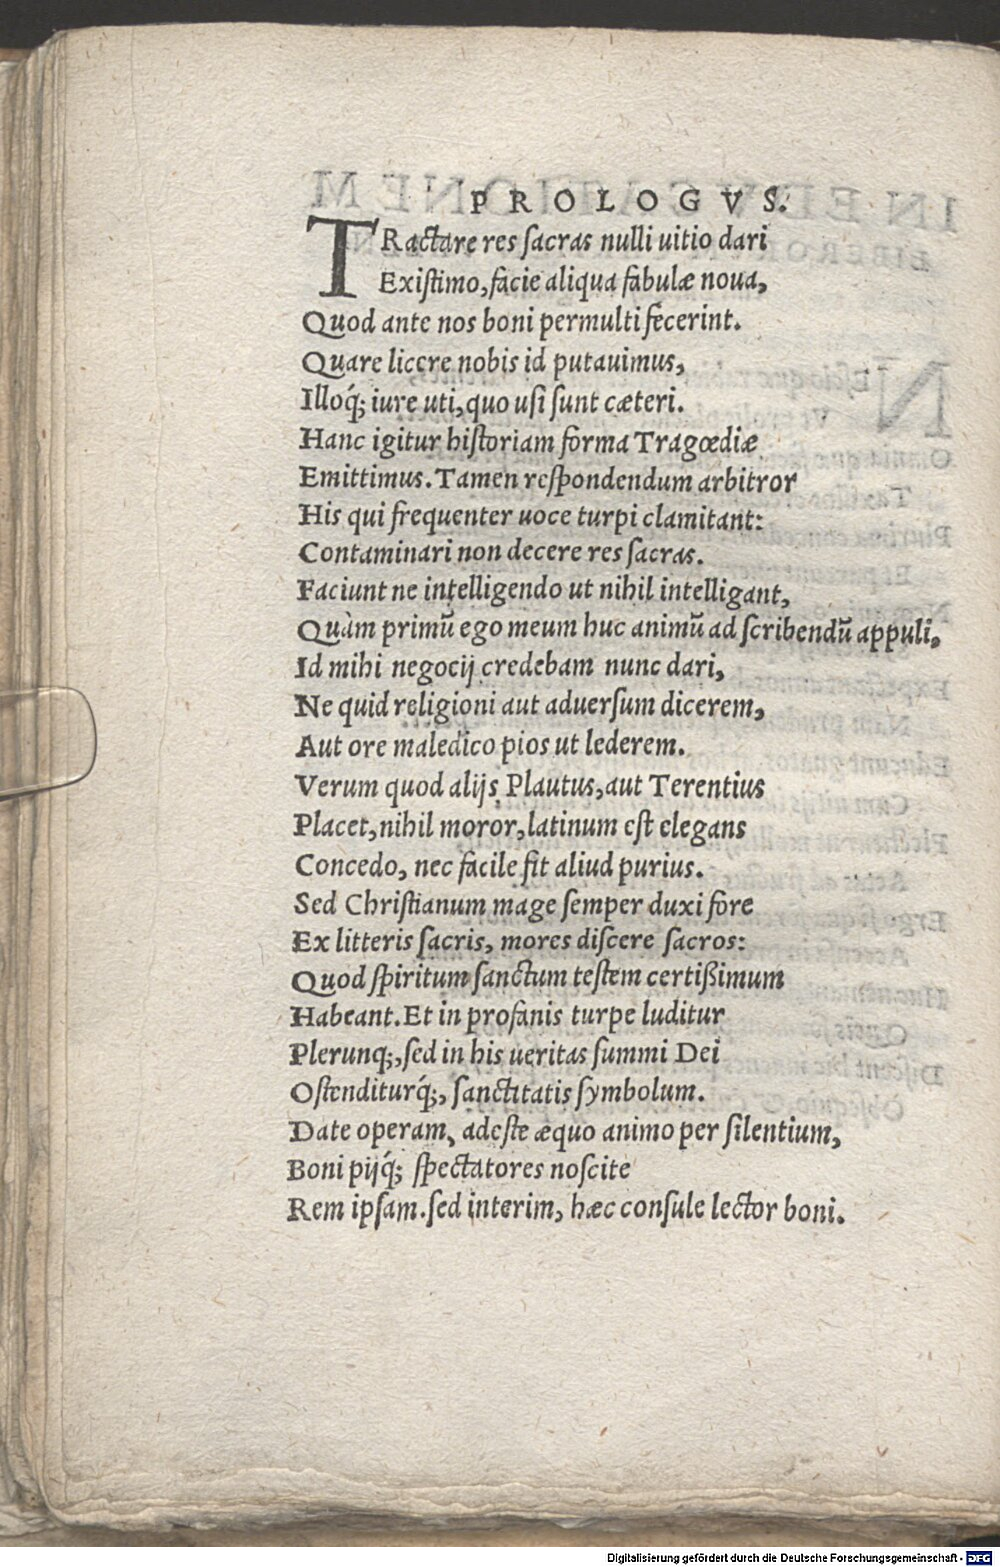 PROLOGVS.
TRactare res ſacras nulli uitio dari
Exiſtimo, facie aliqua fabulæ noua,
Quod ante nos boni permulti fecerint.
Quare liccre nobis id putauimus,
Illoq́; iure uti, quo uſi ſunt cæteri.
Hanc igitur hiſtoriam forma Tragœdiæ
Emittimus. Tamen reſpondendum arbitror
His qui frequenter uoce turpi clamitant:
Contaminari non decere res ſacras.
Faciunt ne intelligendo ut nihil intelligant,
Quàm primū ego meum huc animū ad ſcribendū appuli,
Id mihi negocij credebam nunc dari,
Ne quid religioni aut aduerſum dicerem,
Aut ore maledico pios ut lederem.
Verum quod alijs Plautus, aut Terentius
Placet, nihil moror, latinum eſt elegans
Concedo, nec facile fit aliud purius.
Sed Chriſtianum mage ſemper duxi fore
Ex litteris ſacris, mores diſcere ſacros:
Quod ſpiritum ſanctum teſtem certißimum
Habeant. Et in profanis turpe luditur
Plerunq;, ſed in his ueritas ſummi Dei
Oſtenditurq́;, ſanctitatis ſymbolum.
Date operam, adeſte æquo animo per ſilentium,
Boni pijq́; ſpectatores noſcite
Rem ipſam. ſed interim, hæc conſule lector boni.
Digitalisierung gefördert durch die Deutsche Forschungsgemeinschaft - DFG